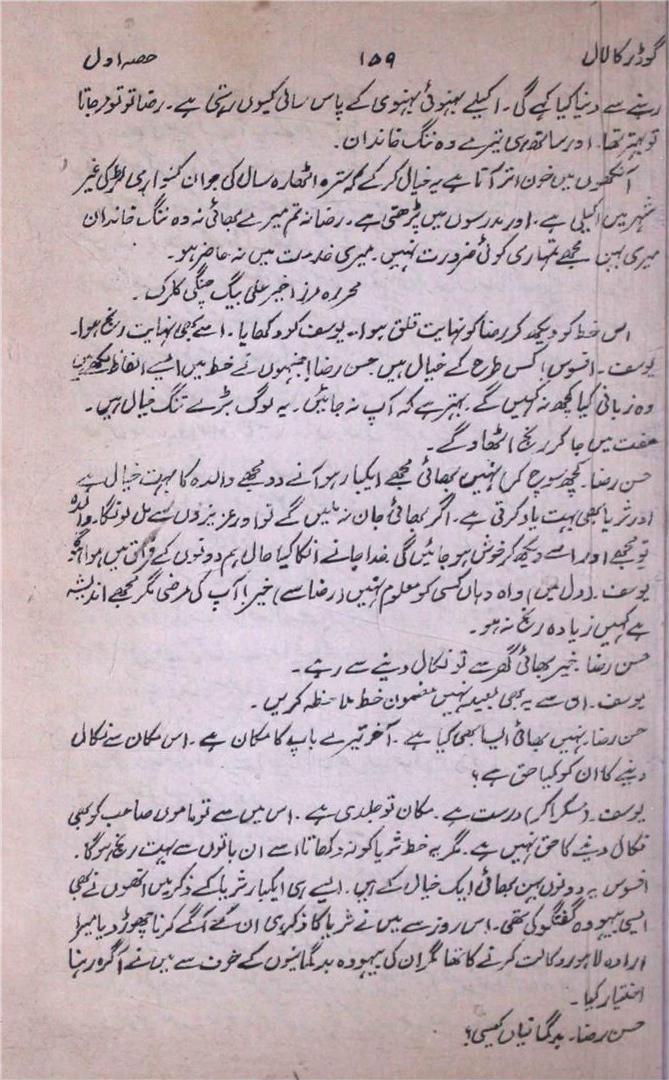 گودڑ کا لال ۱۵۹ حصہ اول
رہنے سے دنیا کیا کہے گی۔ اکیلے بہنوئی بہنوی کے پاس سالی کیوں رہتی ہے۔ رضا تو تو مرجاتا
تو بہتر تھا۔ اور ساتھ ہی تیرے وہ ننگ خاندان۔
آنکھوں میں خون اتر آتا ہے یہ خیال کر کے کہ سترہ اٹھارہ سال کی جوان کنواری لڑکی غیر
شہر میں اکیلی ہے۔ اور مدرسوں میں پڑھتی ہے۔ رضا نہ تم میرے بھائی نہ وہ ننگ خاندان
میری بہن مجھے تمہاری کوئی ضرورت نہیں۔ میری خدمت میں نہ حاضر ہو۔
محررہ مرزا خیر علی بیگ چنگی کلرک۔
اس خط کو دیکھ کر رضا کو نہایت قلق ہوا۔ یوسف کو دکھایا۔ اسے بھی نہایت رنج ہوا۔
یوسف۔ افسوس! کس طرح کے خیال ہیں حسن رضا! جنہوں نے خط میں ایسے الفاظ لکھے ہیں
وہ زبانی کیا کچھ نہ کہیں گے۔ بہتر ہے کہ آپ نہ جائیں۔ یہ لوگ بڑے تنگ خیال ہیں۔
مفت میں جا کر رنج اٹھاؤ گے۔
حسن رضا۔ کچھ سوچ کر) نہیں بھائی مجھے ایکبار ہو آنے دو مجھے والدہ کا بہت خیال ہے
اور ثریا بھی بہت یاد کرتی ہے۔ اگر بھائی جان نہ ملیں گے تو اور عزیزوں سے مل لونگا۔ والدہ
تو مجھے اور اسے دیکھ کر خوش ہو جائیں گی خدا جانے انکا کیا حال ہم دونوں کے فراق میں ہوا ہوگا
یوسف۔ (دل میں) واہ وہاں کسی کو معلوم نہیں (رضا سے) خیر! آپ کی مرضی مگر مجھے اندیشہ
ہے کہیں زیادہ رنج نہ ہو۔
حسن رضا۔ خیر بھائی گھر سے تو نکال دینے سے رہے۔
یوسف۔ ان سے یہ بھی بعید نہیں مضمون خط ملاحظہ کریں۔
حسن رضا۔ نہیں بھائی ایسا بھی کیا ہے۔ آخر تیرے باپ کا مکان ہے۔ اس مکان سے نکال
دینے کا ان کو کیا حق ہے؟
یوسف۔ (مسکرا کر) درست ہے۔ مکان تو جدی ہے۔ اس میں سے تو ماموں صاحب کو بھی
نکال دینے کا حق نہیں ہے۔ مگر یہ خط ثریا کو نہ دکھانا اسے ان باتوں سے بہت رنج ہو گا۔
افسوس یہ دونوں بہن بھائی ایک خیال کے ہیں۔ ایسے ہی ایکبار ثریا کے ذکر میں انھوں نے بھی
ایسی بیہودہ گفتگو کی تھی۔ اس روز سے میں نے ثریا کا ذکر ہی ان کے آگے کرنا چھوڑ دیا میرا
ارادہ لاہور وکالت کرنے کا تھا مگر ان کی بیہودہ بدگمانیوں کے خوف سے میں نے آگرہ رہنا
اختیار کیا۔
حسن رضا۔ بدگمانیاں کیسی؟